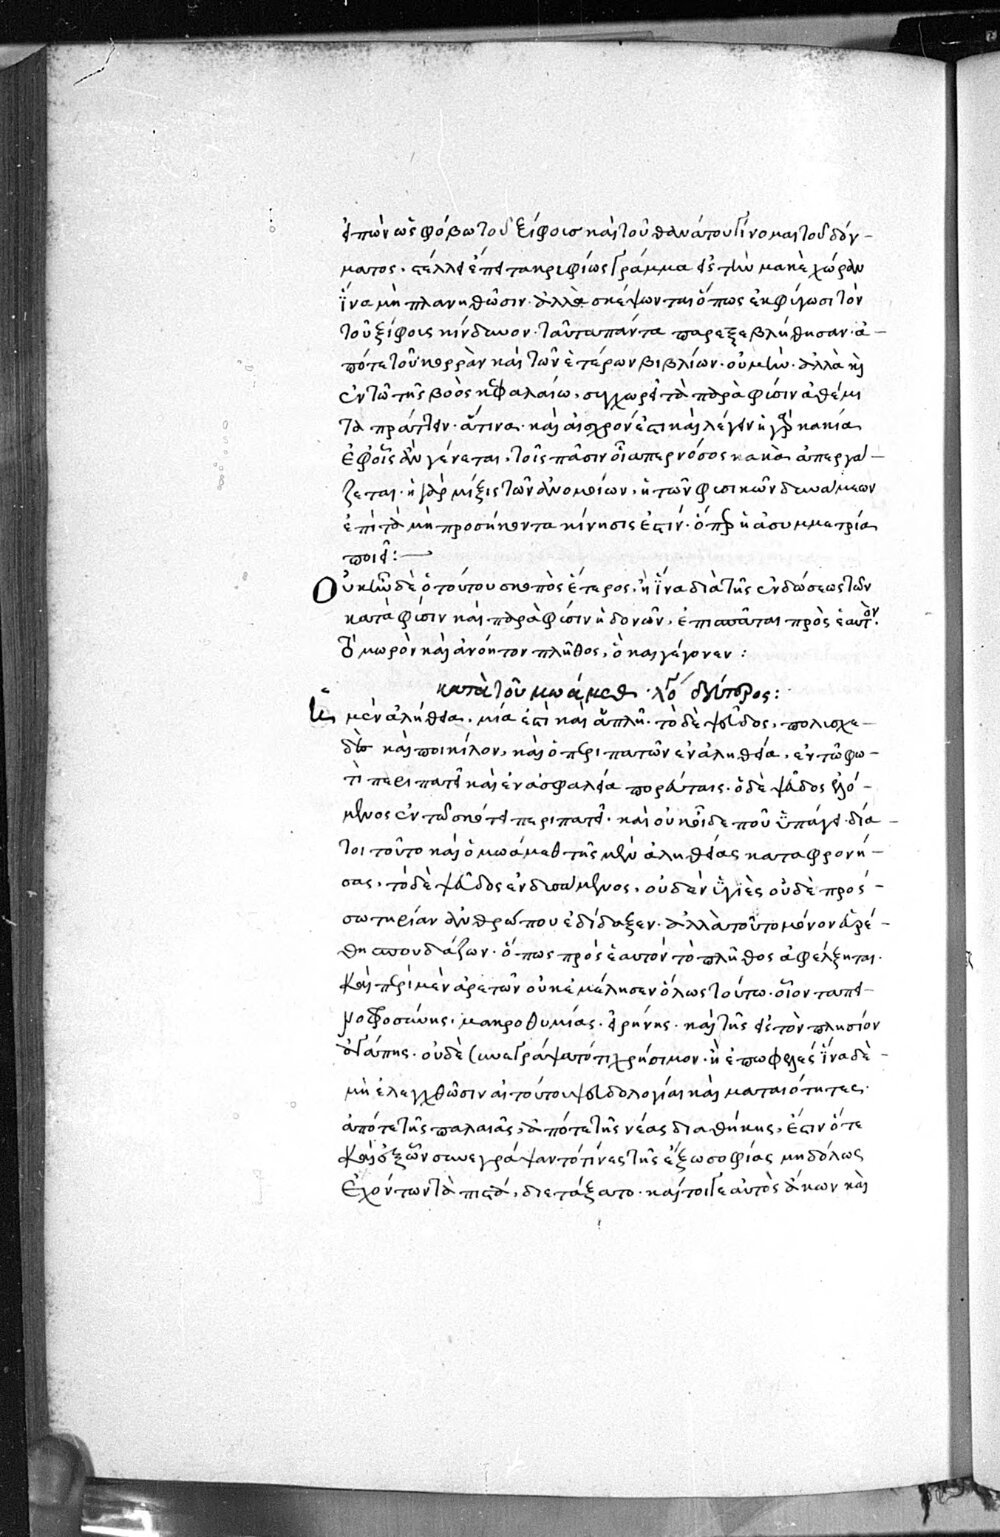 εἰπὼν ὡς φόβω τοῦ ξίφους καὶ τοῦ θανάτου γίνομαι τοῦ δόγ-
ματος. στέλλει ἔπειτα κρυφίως γράμμα εἰς τὴν μακὲ χώραν
ἵνα μὴ πλανηθῶσιν. ἀλλὰ σκέψωνται ὅπως ἐκφύγωσι τὸν
τοῦ ξίφους κίνδυνον. ταῦτα πάντα παρεξεβλήθησαν. ἀ-
πό τε τοῦ κορρὰν καὶ τῶν ἑτέρων βιβλίων. οὐ μὴν ἀλλὰ κὶ
ἐν τῶ τῆς βοὸς κεφαλαίω, συγχωρεῖ τὰ παρὰ φύσιν ἀθέμι
τα πράττειν. ἅτινα καὶ αἰσχρόν ἐστι καὶ λέγειν ἡ γὰρ κακία
ἐφ' οἷς ἂν γένεται, τοῖς πᾶσιν οἷαπερ νόσος κακὰ ἀπεργά-
ζεται. ἡ γὰρ μίξις τῶν ἀνομοίων, ἡ τῶν φυσικῶν δυνάμεων
ἐπὶ τὰ μὴ προσήκοντα κίνησις ἐστίν. ὅπερ ἡ ἀσυμμετρία
ποιεῖ:
Οὐκ ἦν δὲ ὁ τούτου σκοπὸς ἕτερος, ἢ ἵνα διὰ τῆς ἐνδώσεως τῶν
κατὰ φύσιν καὶ παρὰ φύσιν ἡδονῶν, ἐπισπᾶται πρὸς ἑαυτὸν.
τὸ μωρὸν καὶ ἀνόητον πλῆθος, ὃ καὶ γέγονεν:
κατὰ τοῦ μωάμεθ λόγος δεύτερος:
Ἡ μὲν ἀλήθεια, μία ἐστὶ καὶ ἁπλῆ. τὸ δὲ ψεῦδος, πολυσχε-
δὲς καὶ ποικίλον, καὶ ὁ περιπατῶν ἐν ἀληθεία, ἐν τῶ φω-
τὶ περιπατεῖ καὶ ἐν ἀσφαλεία πορεύεται. ὁ δὲ ψεῦδος ἑλό-
μενος ἐν τῶ σκότει περιπατεῖ. καὶ οὐκ οἶδε ποῦ ὑπάγει. διά
τοι τοῦτο καὶ ὁ μωάμεθ τῆς μὲν ἀληθείας καταφρονή-
σας, τὸ δὲ ψεῦδος ἐνδυσάμενος, οὐδὲν ὑγιὲς οὐδὲ πρὸς
σωτηρίαν ἀνθρώπου ἐδίδαξεν. ἀλλὰ τοῦτο μόνον εὑρέ-
θη σπουδάζων. ὅπως πρὸς ἑαυτὸν τὸ πλῆθος ἀφέλξηται.
Καὶ περὶ μὲν ἀρετῶν οὐκ ἐμέλησεν ὅλως τούτω. οἷον ταπει-
νοφροσύνης, μακροθυμίας. εἰρήνης. καὶ τῆς εἰς τὸν πλησίον
ἀγάπης. οὐδὲ συνεγράψατό τι χρήσιμον. ἢ ἐπωφελές ἵνα δὲ-
μὴ ἐλεγχθῶσιν αἱ τούτου ψευδολογίαι καὶ ματαιότητες.
ἀπό τε τῆς παλαιᾶς, ἀπό τε τῆς νέας διαθήκης, ἔστιν ὅτε
καὶ ἐξ ὧν συνεγράψαντό τινες τῆς ἔξω σοφίας μηδόλως
ἐχόντων τὰ πιστὰ, διετάξατο. καίτοιγε αὐτὸς ἄκων καὶ